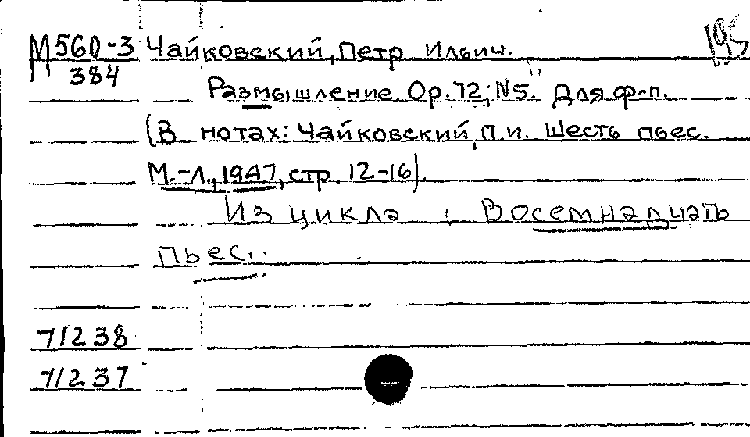 М560-3 Чайковский, Петр Ильич.
384
Размышление Ор. 72; №5." Для ф-п.
(В нотах: Чайковский, П.И. Шесть пьес.
М.-Л., 1947, стр. 12-16).
Из цикла: Восемнадцать
пьес.
71238
71237